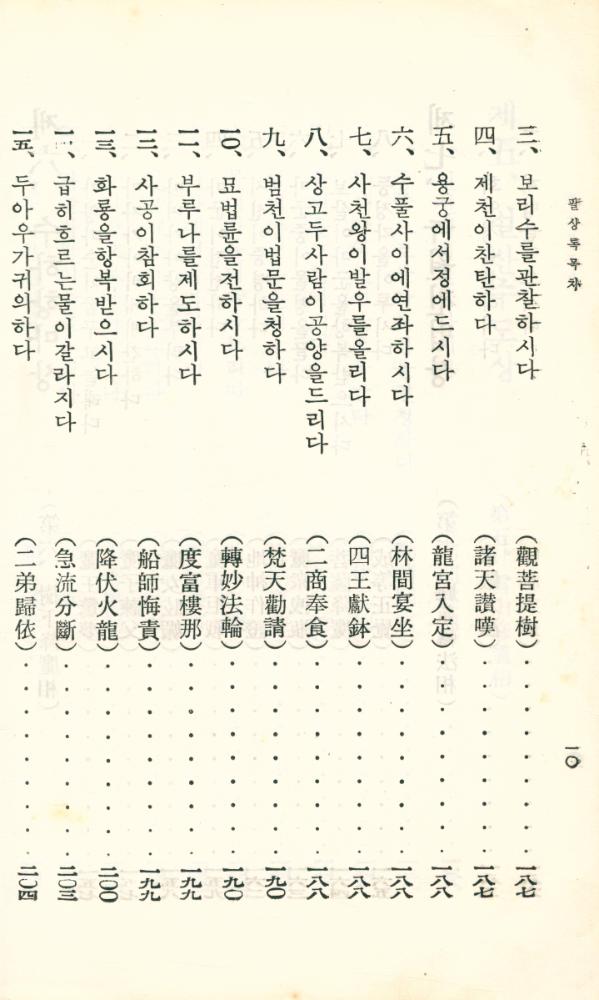 팔상록목차
三、보리수를관찰하시다 (觀菩提樹)・・・・・・・・・一八七
四、제천이찬탄하다 (諸天讃嘆)・・・・・・・・・一八七
五、용궁에서정에드시다 (龍宮入定)・・・・・・・・・一八八
六、수풀사이에연좌하시다 (林間宴坐)・・・・・・・・・一八八
七、사천왕이발우를올리다 (四王獻鉢)・・・・・・・・・一八八
八、상고두사람이공양을드리다 (二商奉食)・・・・・・・・・一八八
九、범천이법문을청하다 (梵天勸請)・・・・・・・・・一九〇
一〇、묘법륜을전하시다 (轉妙法輪)・・・・・・・・・一九〇
一一、부루나를제도하시다 (度富樓那)・・・・・・・・・一九九
一二、사공이참회하다 (船師悔責)・・・・・・・・・一九九
一三、화룡을항복받으시다 (降伏火龍)・・・・・・・・・二〇〇
급히흐르는물이갈라지다 (急流分斷)・・・・・・・・・二〇三
一五、두아우가귀의하다 (二弟歸依)・・・・・・・・・二〇四
一〇